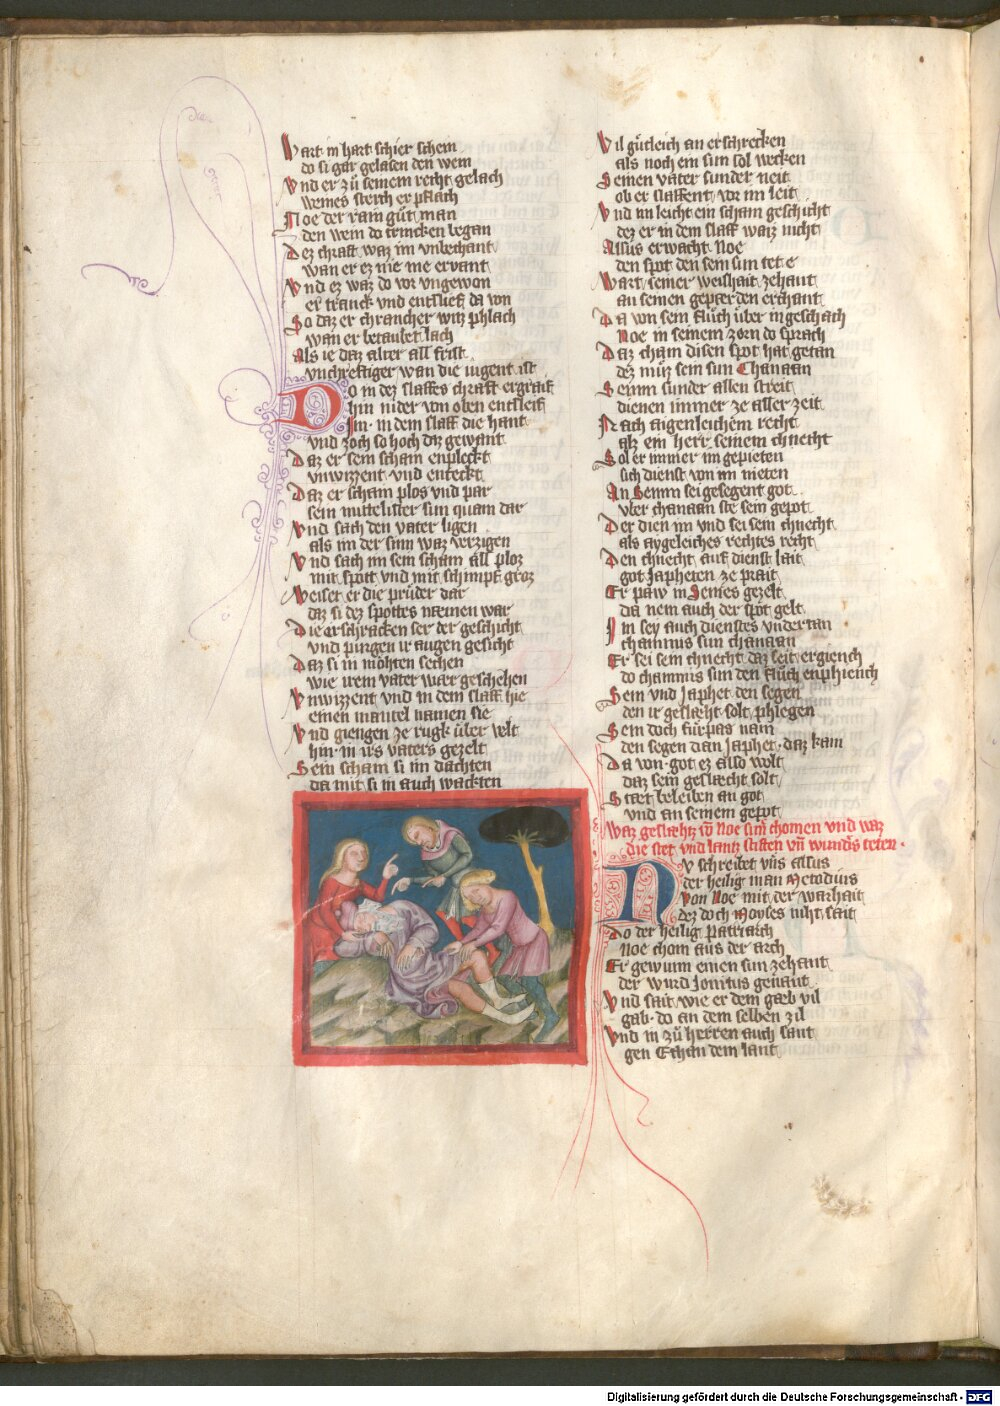 Wart in hart schier schein
do si gar gelasen den wein
Vnd er zů seinem recht gelach
weines sterch er pflach
Noe der rain gůt man
den wein do trincken began
Dez chraft waz im vnbechant
wan er ez nie me ervant
Vnd ez waz do vor vngewon
er tranck vnd entslieff da von
So daz er chrancher witz phlach
wan er betaubet lach
Als ie daz alter all frist
vnchreftiger wan die iugent ist
Do in dez slaffes chraft ergraif
hin nider von oben entsleif
Im in dem slaff die hant
vnd zoch so hoch daz gewant
Daz er sein scham enpleckt
vnwizzent vnd enteckt
Daz er scham plos vnd par
sein mittelister sun quam dar
Vnd sach den vater ligen
als im der sinn waz verzigen
Vnd sach im sein scham all ploz
mit spott vnd mit schimpf groz
Weiset er die průder dar
daz si dez spottes næmen war
Die erschracken ser der geschicht
vnd pürgen ir augen gesicht
Daz si in möhten sechen
wie irem vater wær geschehen
Vnwizzent vnd in dem slaff hie
einen mantel namen sie
Vnd giengen ze rugk über velt
hin in irs vaters gezelt
Sein scham si im dachten
da mit si in auch wachten
Vil gütleich an erschrecken
als noch ein sun sol wecken
Seinen vater sunder neit
ob er slaffent vor im leit
Vnd im leicht ein scham geschicht
dez er in dem slaff waiz nicht
Allus erwacht Noe
den spot den sein sun tet e
Wart seiner weishait zehant
an seinen gepærden erchant
Da von sein flůch über in geschach
Noe in seinem zorn do sprach
Daz cham disen spot hat getan
dez můz sein sun Chanaan
Seinn sunder allen streit
dienen immer ze aller zeit
Nach aigenleichem recht
alz ein herr seinem chnecht
Sol er immer im gepieten
sich dienst von im nieten
An Semm sei gesegent got
vber chanaan ste sein gepot
Der dien im vnd sei sein chnecht
als aygeleiches rechtes recht
Den chnecht auf dienst lait
got Japheten ze prait
Er paw in Semes gezelt
da nem auch der spot gelt
Im sey auch dienstes vndertan
chammis sun chanaan
Er sei sein chnecht daz seit ergiench
do chammis sun den flůch enphiench
Sem vnd Japhet den segen
den ir geslæht solt phlegen
Sem doch fürpas nam
den segen dan Japhet daz kam
Da von got ez also wolt
daz sein geslæcht solt
Stæt beleiben an got
vnd an seinem gepot
Waz geslæhtz võ Noe sun chomen vnd waz
die stet vnd lantz stiften vñ wunders teten
Nv schreibet vns allus
der heilig man Metodius
Von Noe mit der warhait
dez doch Moyses niht sait
Do der heilig patriarch
Noe chom aus der arch
Er gewunn einen sun zehant
der wird Jonitus genant
Vnd sait wie er dem gæb vil
gab do an dem selben zil
Vnd in zů herren auch sant
gen Ethan dem lant
Digitalisierung gefördert durch die Deutsche Forschungsgemeinschaft - DFG